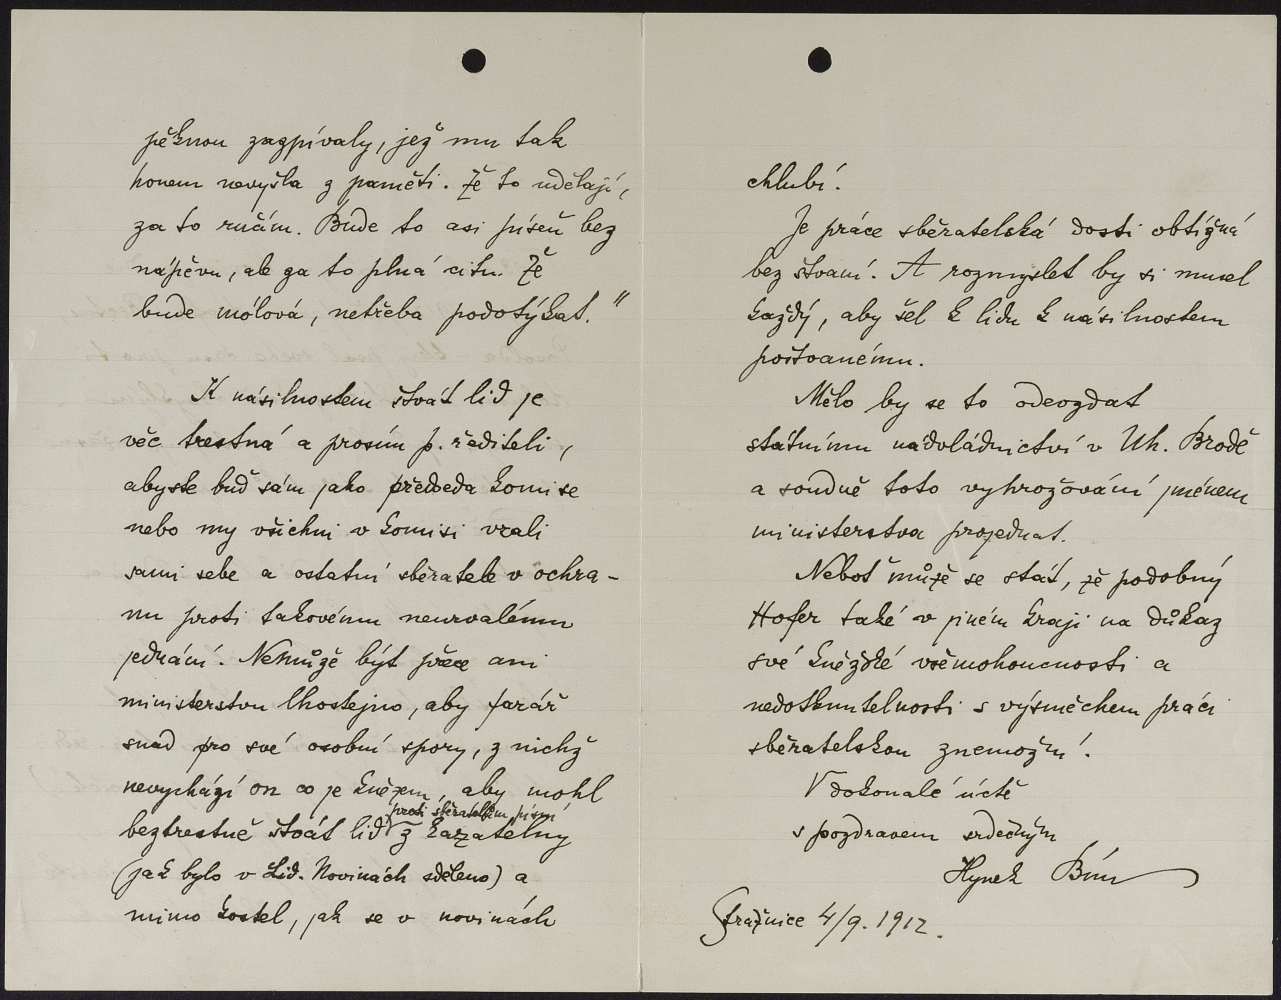 pěknou zazpívaly, jež mu tak
honem nevyšla z paměti. Že to udělají,
za to ručím. Bude to asi píseň bez
nápěvu, ale za to plná citu. Že
bude mólová, netřeba podotýkat."
K násilnostem štvát lid je
věc trestná a prosím p. řediteli,
abyste buď sám jako předseda komise
nebo my všichni v komisi vzali
sami sebe a ostatní sběratele v ochra-
nu proti takovému neurvalému
jednání. Nemůže být přece ani
ministerstvu lhostejno, aby farář
snad pro své osobní spory, z nichž
nevychází on co je knězem, aby mohl
beztrestně štvát lid proti sběratelům písní z kazatelny
(jak bylo v Lid. Novinách sděleno) a
mimo kostel, jak se v novinách
chlubí.
Je práce sběratelská dosti obtížná
bez štvaní. A rozmyslet by si musel
každý, aby šel k lidu k násilnostem
poštvanému.
Mělo by se to odevzdat
státnímu nádvládnictví v Uh. Brodě
a soudně toto vyhrožování jménem
ministerstva projednat.
Neboť může se stát, že podobný
Hofer také v jiném kraji na důkaz
své kněžské všemohoucnosti a
nedotknutelnosti s výsměchem práci
sběratelskou znemožní.
V dokonalé úctě
s pozdravem srdečným
Hynek Bím
Strážnice 4/9. 1912.